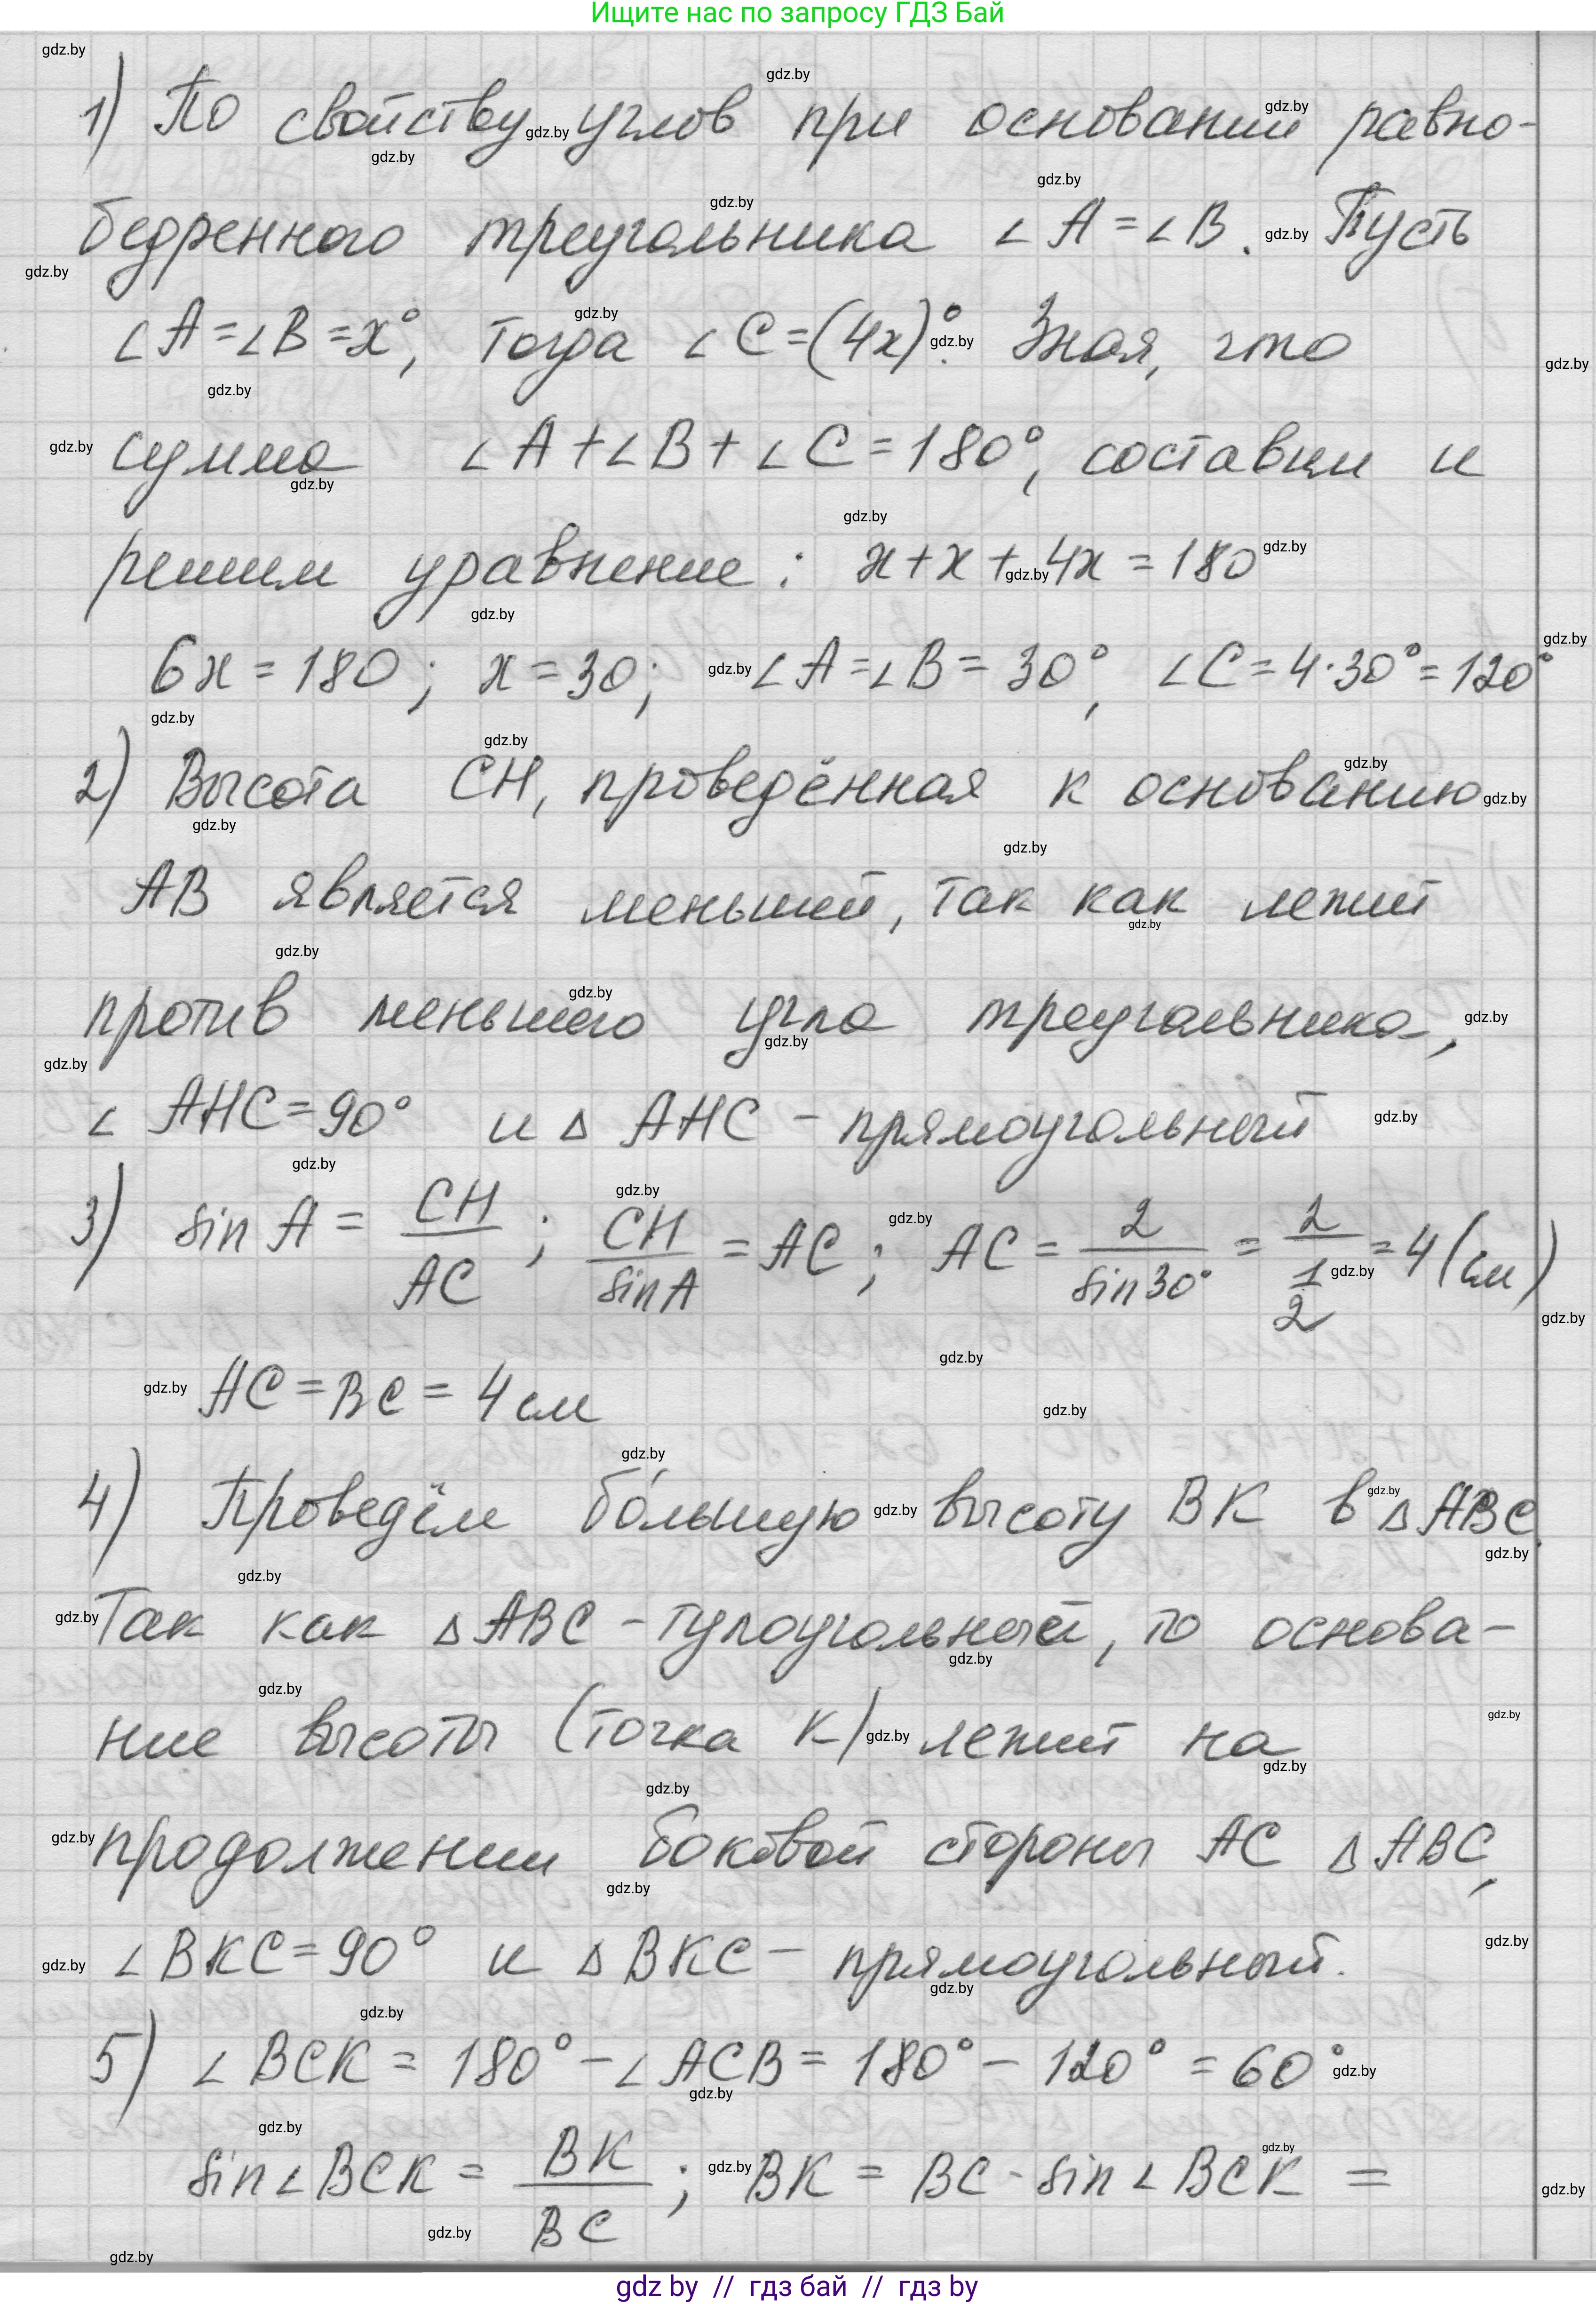 Ищите нас по запросу ГДЗ Бай
1) По свойству углов при основании равно-
бедренного треугольника ∠A = ∠B. Пусть
∠A = ∠B = x°, тогда ∠C = (4x)°. Зная, что
сумма ∠A + ∠B + ∠C = 180°, составим и
решим уравнение: x + x + 4x = 180
6x = 180; x = 30; ∠A = ∠B = 30°, ∠C = 4·30° = 120°
2) Высота CH, проведённая к основанию
AB является меньшей, так как лежит
против меньшего угла треугольника,
∠AHC = 90° и △AHC – прямоугольный
3) sin A = CH/AC; CH/sin A = AC; AC = 2/sin 30° = 2/(1/2) = 4 (см)
AC = BC = 4 см
4) Проведём бо́льшую высоту BK в △ABC.
Так как △ABC – тупоугольный, то основа-
ние высоты (точка K) лежит на
продолжении боковой стороны AC △ABC,
∠BKC = 90° и △BKC – прямоугольный.
5) ∠BCK = 180° – ∠ACB = 180° – 120° = 60°
sin∠BCK = BK/BC; BK = BC · sin∠BCK =
gdz by // гдз бай // гдз by